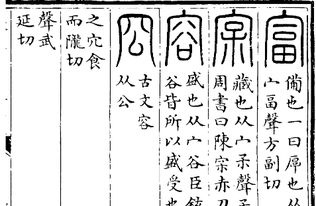 富
備也一曰厚也从
宀畐聲方副切
宗
藏也从宀𤓽聲𤓽
周書曰陳宗赤刀
容
盛也从宀谷臣鉉
谷皆所以盛受也
㕣
古文容
从公
之宂食
而隴切
聲武
延切